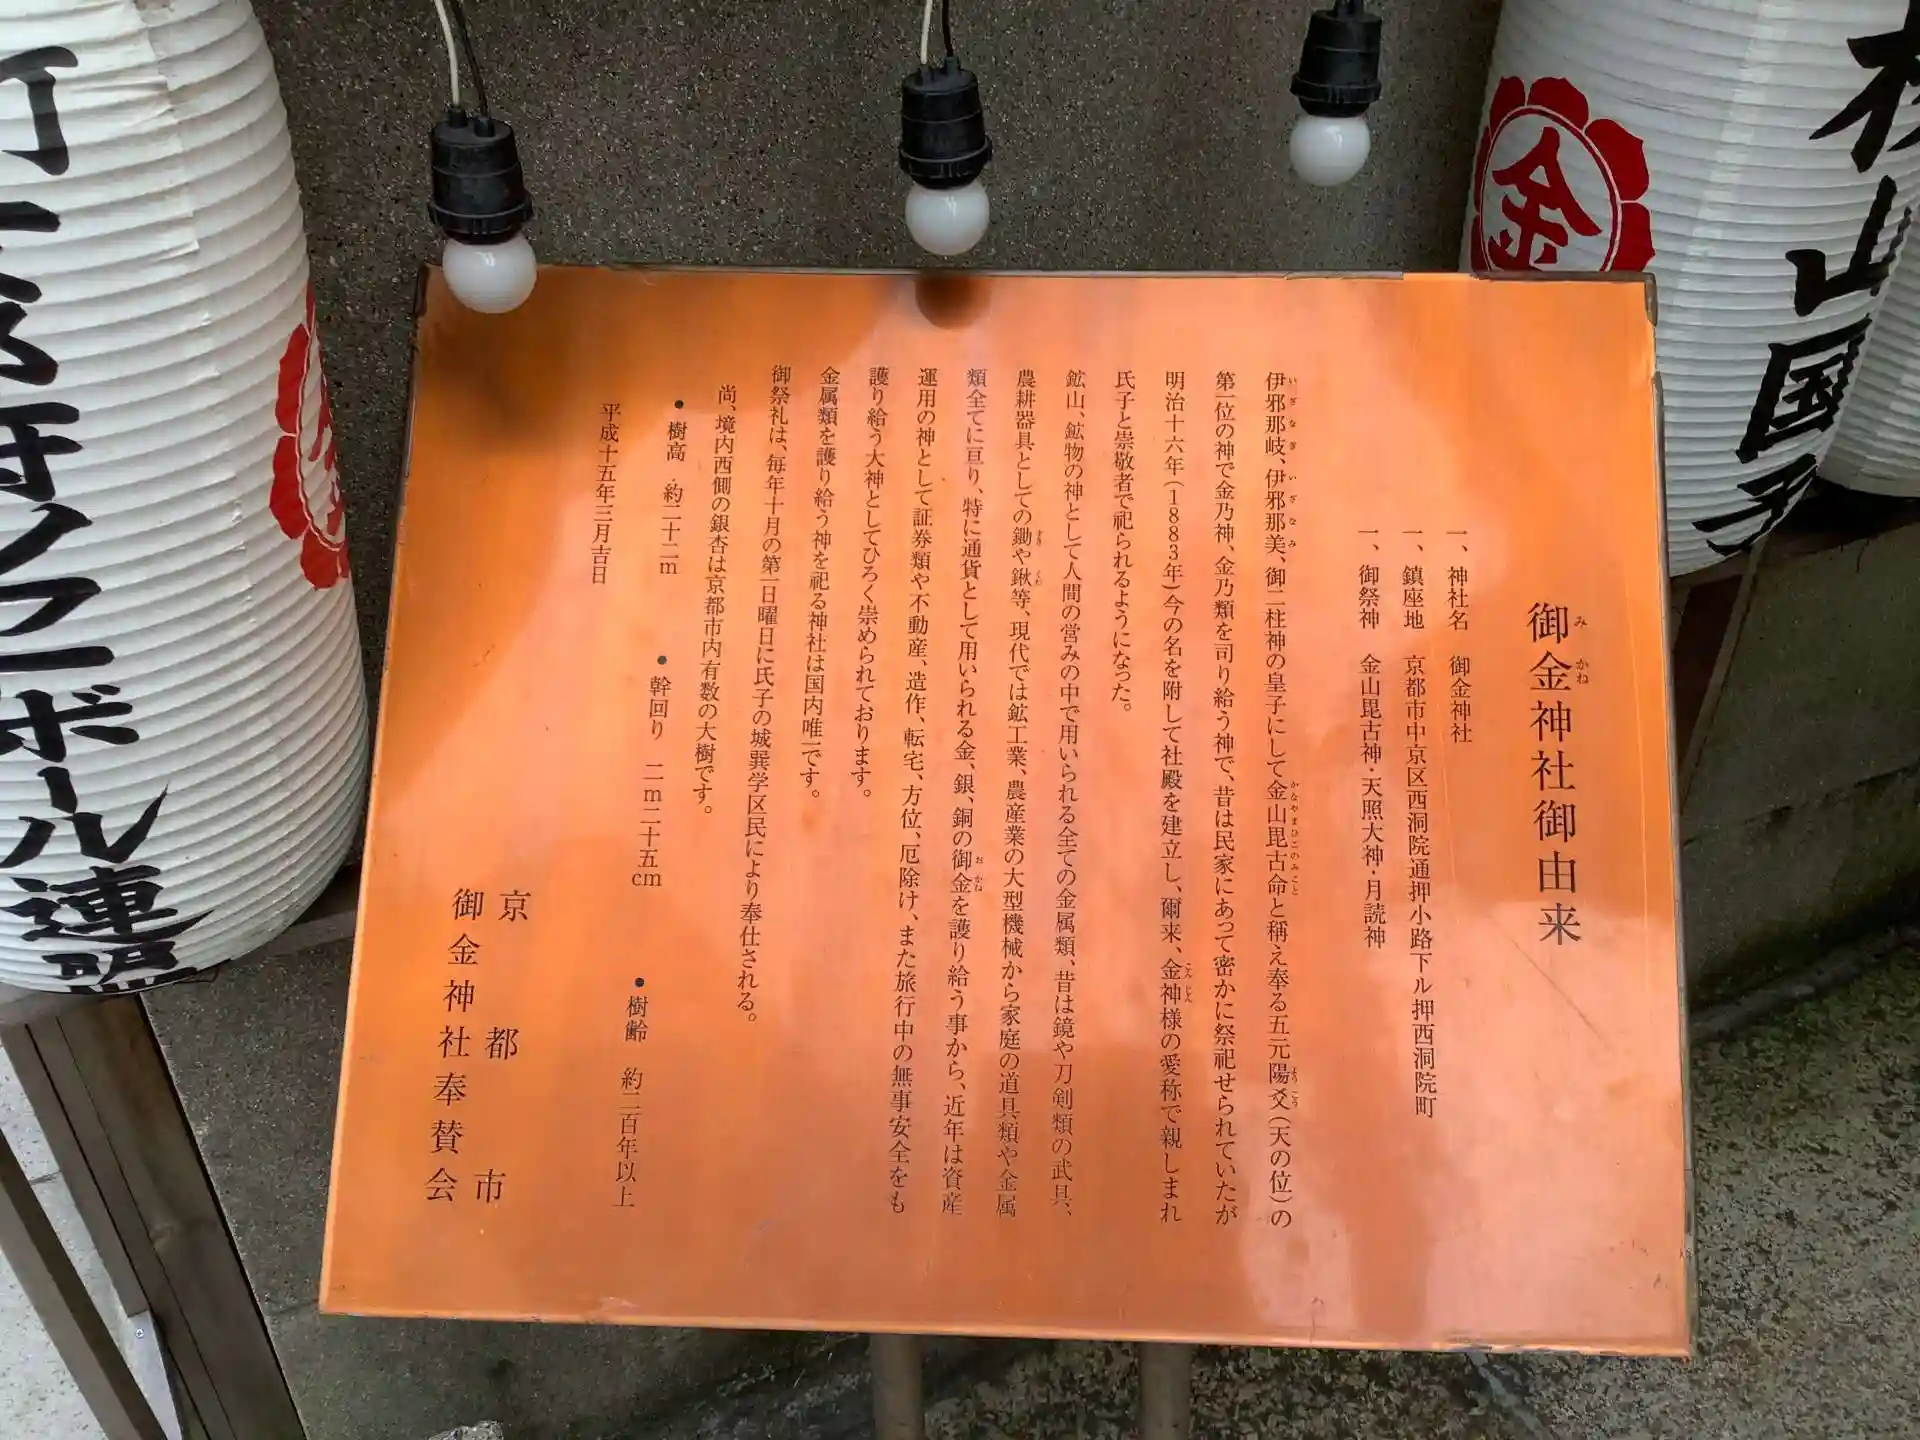 御金神社御由来
みかね
一、神社名　御金神社
一、鎮座地　京都市中京区西洞院通押小路下ル押西洞院町
一、御祭神　金山毘古神・天照大神・月読神
伊邪那岐、伊邪那美、御二柱神の皇子にして金山毘古命と稱え奉る五元陽爻(天の位)の
いざなぎ　いざなみ　かなやまひこのみこと　ようこう
第一位の神で金乃神、金乃類を司り給う神で、昔は民家にあって密かに祭祀せられていたが
明治十六年(1883年)今の名を附して社殿を建立し、爾来、金神様の愛称で親しまれ
こんじん
氏子と崇敬者で祀られるようになった。
鉱山、鉱物の神として人間の営みの中で用いられる全ての金属類、昔は鏡や刀剣類の武具、
農耕器具としての鋤や鍬等、現代では鉱工業、農産業の大型機械から家庭の道具類や金属
すき　くわ
類全てに亘り、特に通貨として用いられる金、銀、銅の御金を護り給う事から、近年は資産
おかね
運用の神として証券類や不動産、造作、転宅、方位、厄除け、また旅行中の無事安全をも
護り給う大神としてひろく崇められております。
金属類を護り給う神を祀る神社は国内唯一です。
御祭礼は、毎年十月の第一日曜日に氏子の城巽学区民により奉仕される。
尚、境内西側の銀杏は京都市内有数の大樹です。
●樹高　約二十二m　●幹回り　二m二十五cm　●樹齢　約二百年以上
平成十五年三月吉日
京都市
御金神社奉賛会
金
山国
ソフトボール連盟